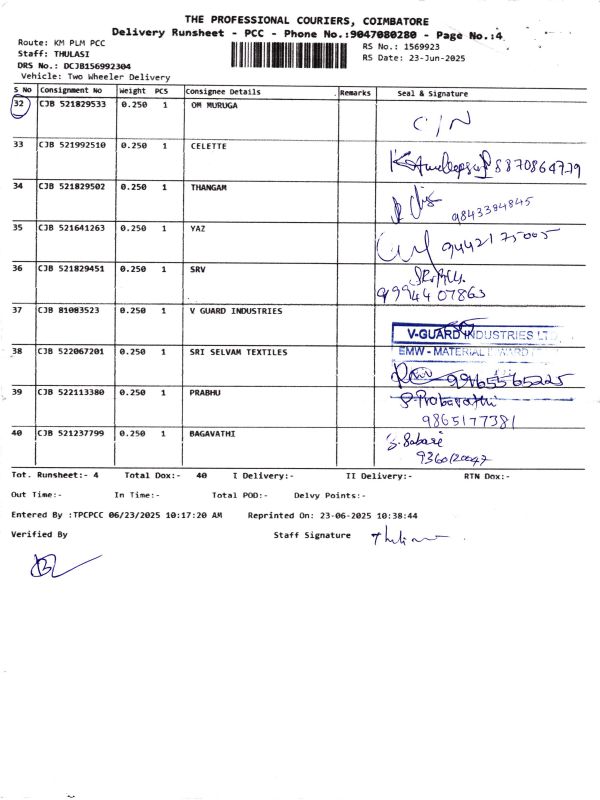 THE PROFESSIONAL COURIERS, COIMBATORE
Delivery Runsheet - PCC - Phone No.:9047080280 - Page No.:4
Route: KM PLM PCC
RS No.: 1569923
Staff: THULASI
RS Date: 23-Jun-2025
DRS No.: DCJB156992304
Vehicle: Two Wheeler Delivery
S No Consignment No Weight PCS Consignee Details Remarks Seal & Signature
32 CJB 521829533 0.250 1 OM MURUGA C/N
33 CJB 521992510 0.250 1 CELETTE
34 CJB 521829502 0.250 1 THANGAM 9843394845
35 CJB 521641263 0.250 1 YAZ 9442175005
36 CJB 521829451 0.250 1 SRV
9994407863
37 CJB 81083523 0.250 1 V GUARD INDUSTRIES
V-GUARD INDUSTRIES LT
38 CJB 522067201 0.250 1 SRI SELVAM TEXTILES EMW - MATERIAL INWARD
9965565225
39 CJB 522113380 0.250 1 PRABHU
9865177381
40 CJB 521237799 0.250 1 BAGAVATHI
Tot. Runsheet:- 4 Total Dox:- 40 I Delivery:- II Delivery:- RTN Dox:-
Out Time:- In Time:- Total POD:- Delvy Points:-
Entered By :TPCPCC 06/23/2025 10:17:20 AM Reprinted On: 23-06-2025 10:38:44
Verified By Staff Signature